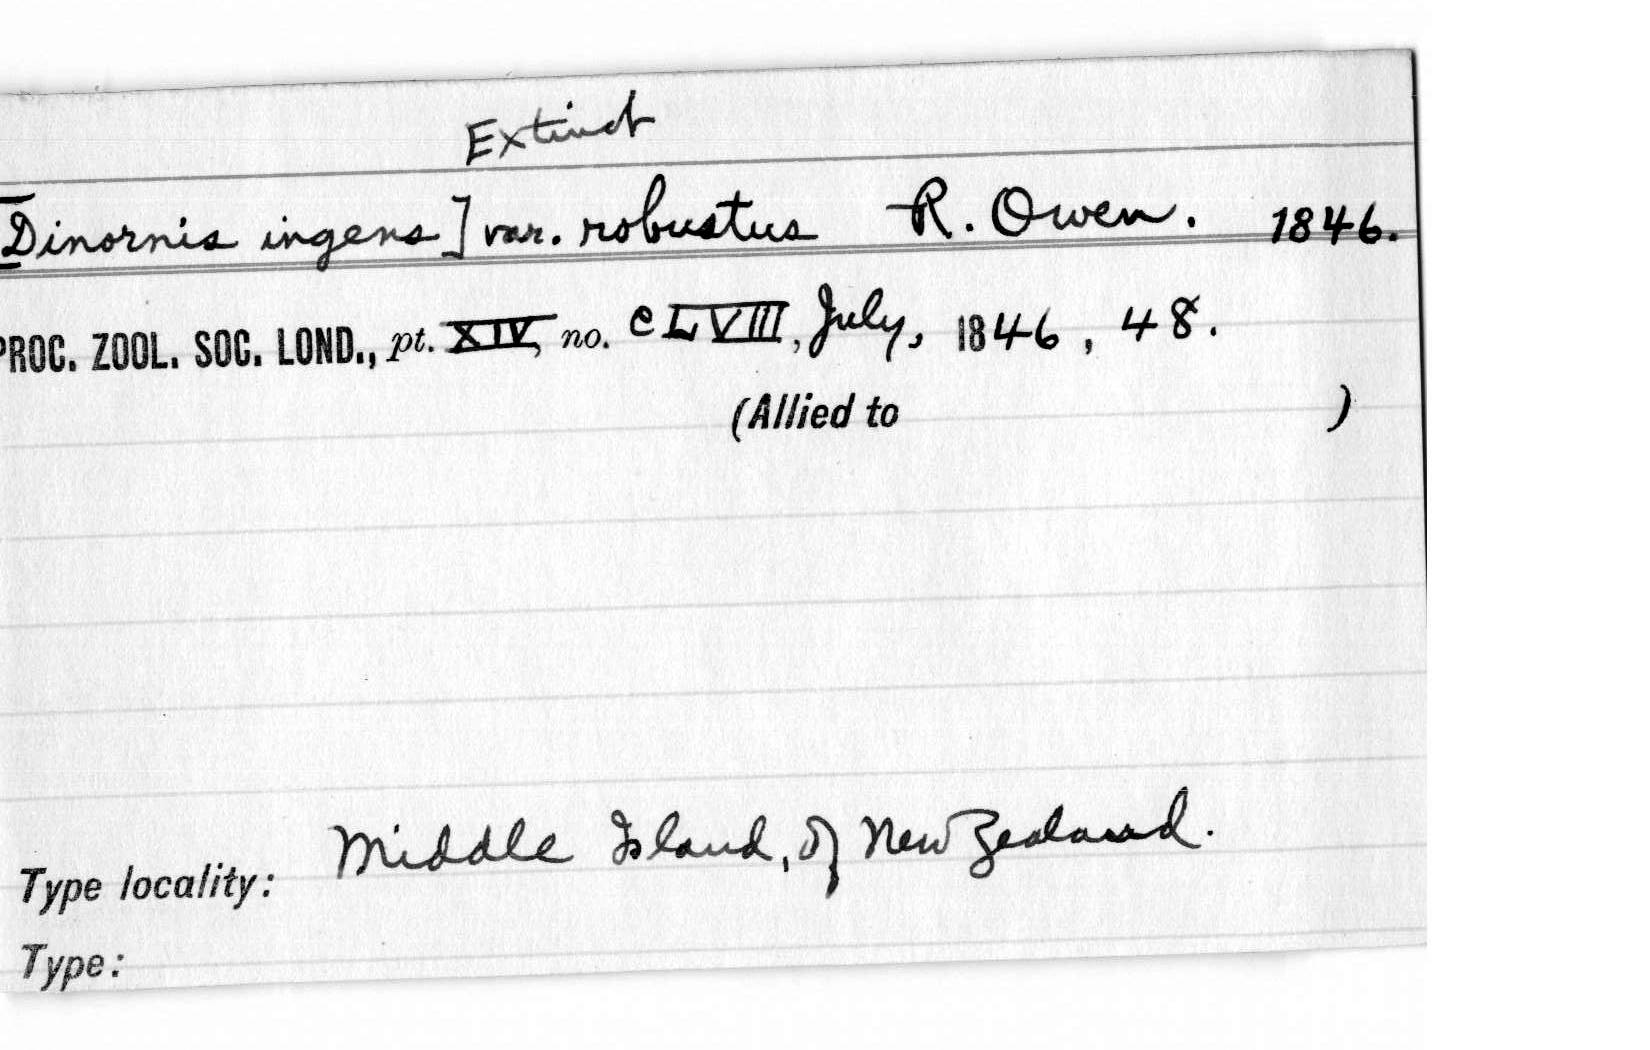 Extinct
[Dinornis ingens] var. robustus R. Owen. 1846.
PROC. ZOOL. SOC. LOND., pt. XIV, no. CLVIII, July, 1846, 48.
(Allied to )
Type locality: Middle Island, of New Zealand.
Type: